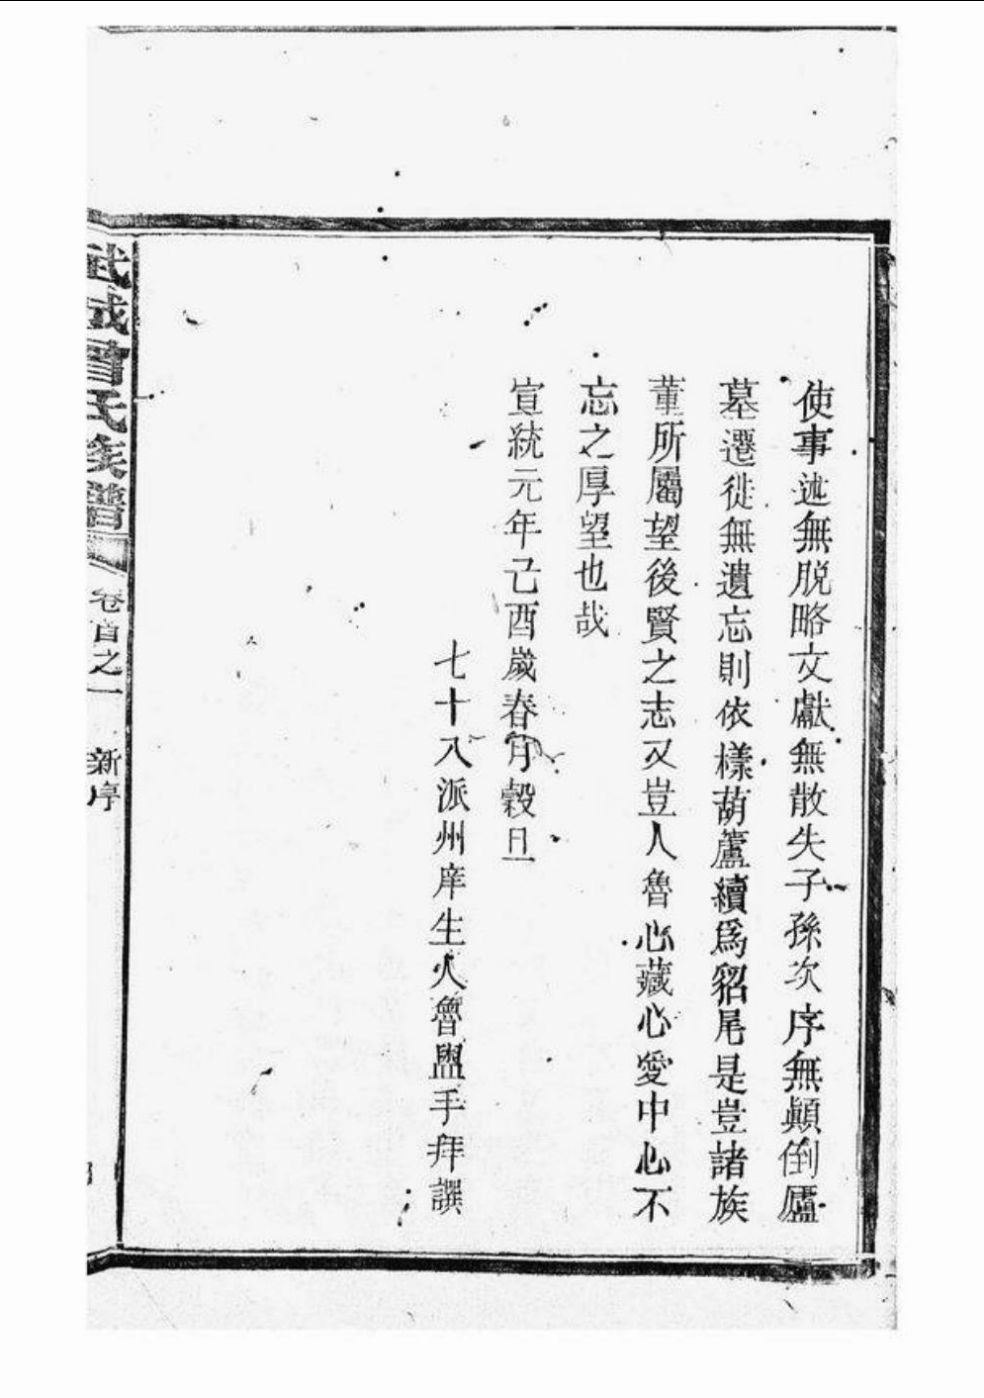 使事述無脱略文獻無散失子孫次序無顛倒廬
墓遷徙無遺忘則依樣葫蘆續爲貂尾是豈諸族
董所屬望後賢之志又豈人魯心藏心愛中心不
忘之厚望也哉
宣統元年己酉歲春月穀旦
七十八派州庠生人魯盥手拜譔
武城曾氏族譜
卷首之一
新序